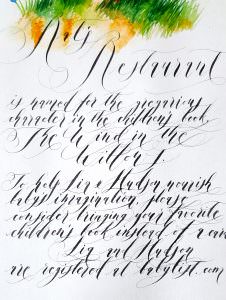 Restaurant
is named for the gregarious
character in the children's book,
The Wind in the
Willows.
To help Liz & Hudson nourish
baby's imagination, please
consider bringing your favorite
children's book instead of a card
Liz and Hudson
are registered at babylist.com